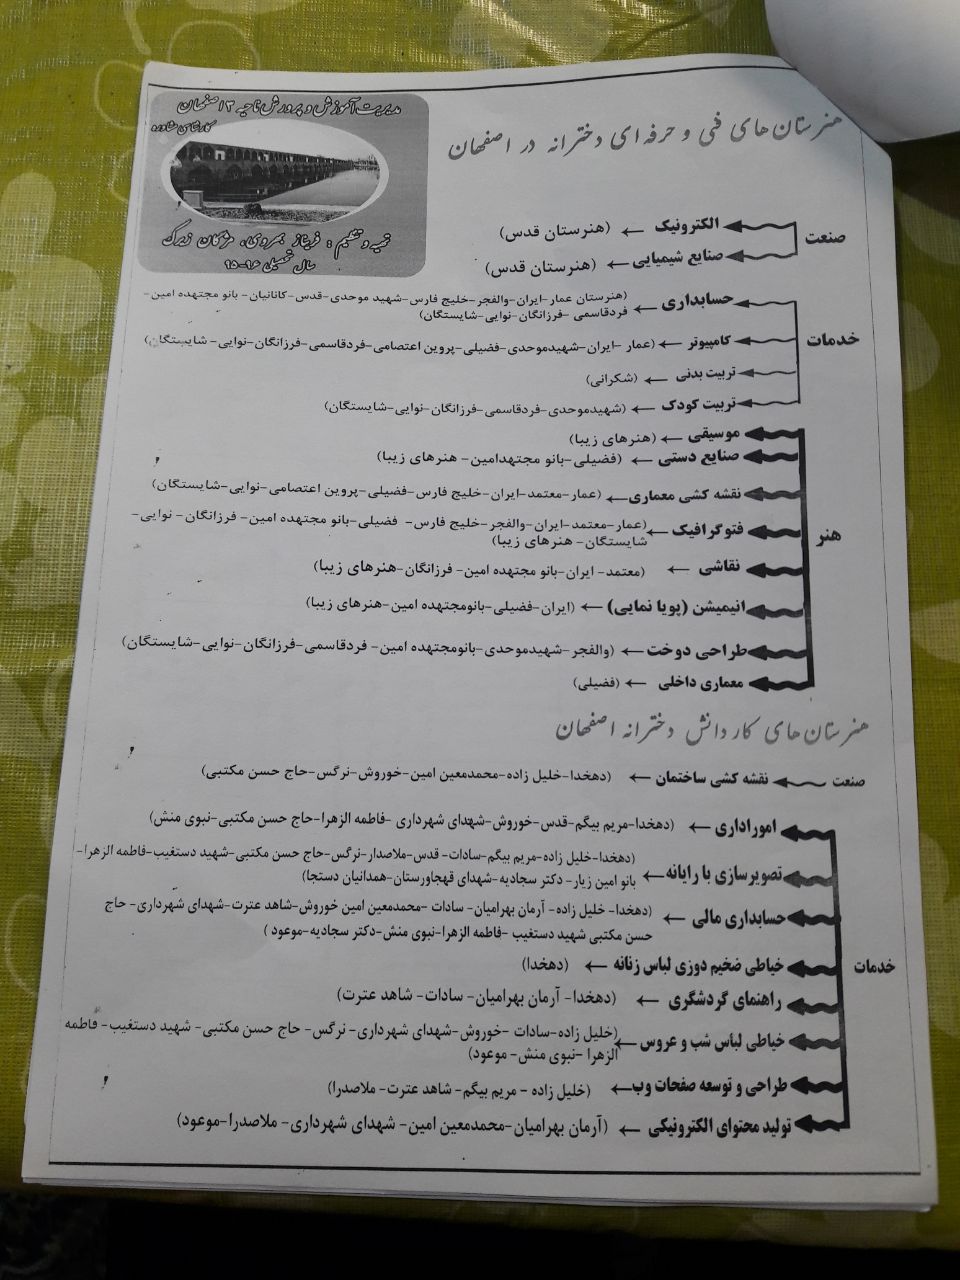 هنرستان های فنی و حرفه ای دخترانه در اصفهان
مدیریت آموزش و پرورش ناحیه ۳ اصفهان
کارشناسی مشاوره
تهیه و تنظیم : فریناز بهروی، مژگان زیرک
سال تحصیلی ۹۶-۹۵
صنعت
الکترونیک ← (هنرستان قدس)
صنایع شیمیایی ← (هنرستان قدس)
خدمات
حسابداری ← (هنرستان عمار-ایران-والفجر-خلیج فارس-شهید موحدی-قدس-کاتانیان- بانو مجتهده امین-
فردقاسمی -فرزانگان-نوایی-شایستگان)
کامپیوتر ← (عمار -ایران-شهیدموحدی-فضیلی-پروین اعتصامی-فردقاسمی-فرزانگان-نوایی- شایستگان)
تربیت بدنی ← (شکرانی)
تربیت کودک ← (شهیدموحدی-فردقاسمی-فرزانگان-نوایی-شایستگان)
هنر
موسیقی ← (هنرهای زیبا)
صنایع دستی ← (فضیلی-بانو مجتهدامین- هنرهای زیبا)
نقشه کشی معماری ← (عمار-معتمد-ایران-خلیج فارس-فضیلی-پروین اعتصامی-نوایی-شایستگان)
فتوگرافیک ← (عمار-معتمد-ایران-والفجر-خلیج فارس- فضیلی-بانو مجتهده امین- فرزانگان- نوایی-
شایستگان- هنرهای زیبا)
نقاشی ← (معتمد- ایران-بانو مجتهده امین- فرزانگان-هنرهای زیبا)
انیمیشن (پویا نمایی) ← (ایران-فضیلی-بانومجتهده امین-هنرهای زیبا)
طراحی دوخت ← (والفجر-شهیدموحدی-بانومجتهده امین- فردقاسمی-فرزانگان-نوایی-شایستگان)
معماری داخلی ← (فضیلی)
هنرستان های کاردانش دخترانه اصفهان
صنعت
نقشه کشی ساختمان ← (دهخدا-خلیل زاده-محمدمعین امین-خوروش-نرگس-حاج حسن مکتبی)
خدمات
اموراداری ← (دهخدا-مریم بیگم-قدس-خوروش-شهدای شهرداری -فاطمه الزهرا-حاج حسن مکتبی-نبوی منش)
تصویرسازی با رایانه ← (دهخدا-خلیل زاده-مریم بیگم-سادات- قدس-ملاصدار-نرگس-حاج حسن مکتبی-شهید دستغیب-فاطمه الزهرا-
بانو امین زیار- دکتر سجادیه-شهدای قهجاورستان-همدانیان دستجا)
حسابداری مالی ← (دهخدا- خلیل زاده- آرمان بهرامیان- سادات -محمدمعین امین خوروش-شاهد عترت-شهدای شهرداری- حاج
حسن مکتبی شهید دستغیب -فاطمه الزهرا-نبوی منش-دکتر سجادیه-موعود )
خیاطی ضخیم دوزی لباس زنانه ← (دهخدا)
راهنمای گردشگری ← (دهخدا- آرمان بهرامیان- سادات- شاهد عترت)
خیاطی لباس شب و عروس ← (خلیل زاده-سادات -خوروش-شهدای شهرداری- نرگس- حاج حسن مکتبی- شهید دستغیب- فاطمه
الزهرا -نبوی منش- موعود)
طراحی و توسعه صفحات وب ← (خلیل زاده - مریم بیگم- شاهد عترت- ملاصدرا)
تولید محتوای الکترونیکی ← (آرمان بهرامیان-محمدمعین امین- شهدای شهرداری- ملاصدرا-موعود)